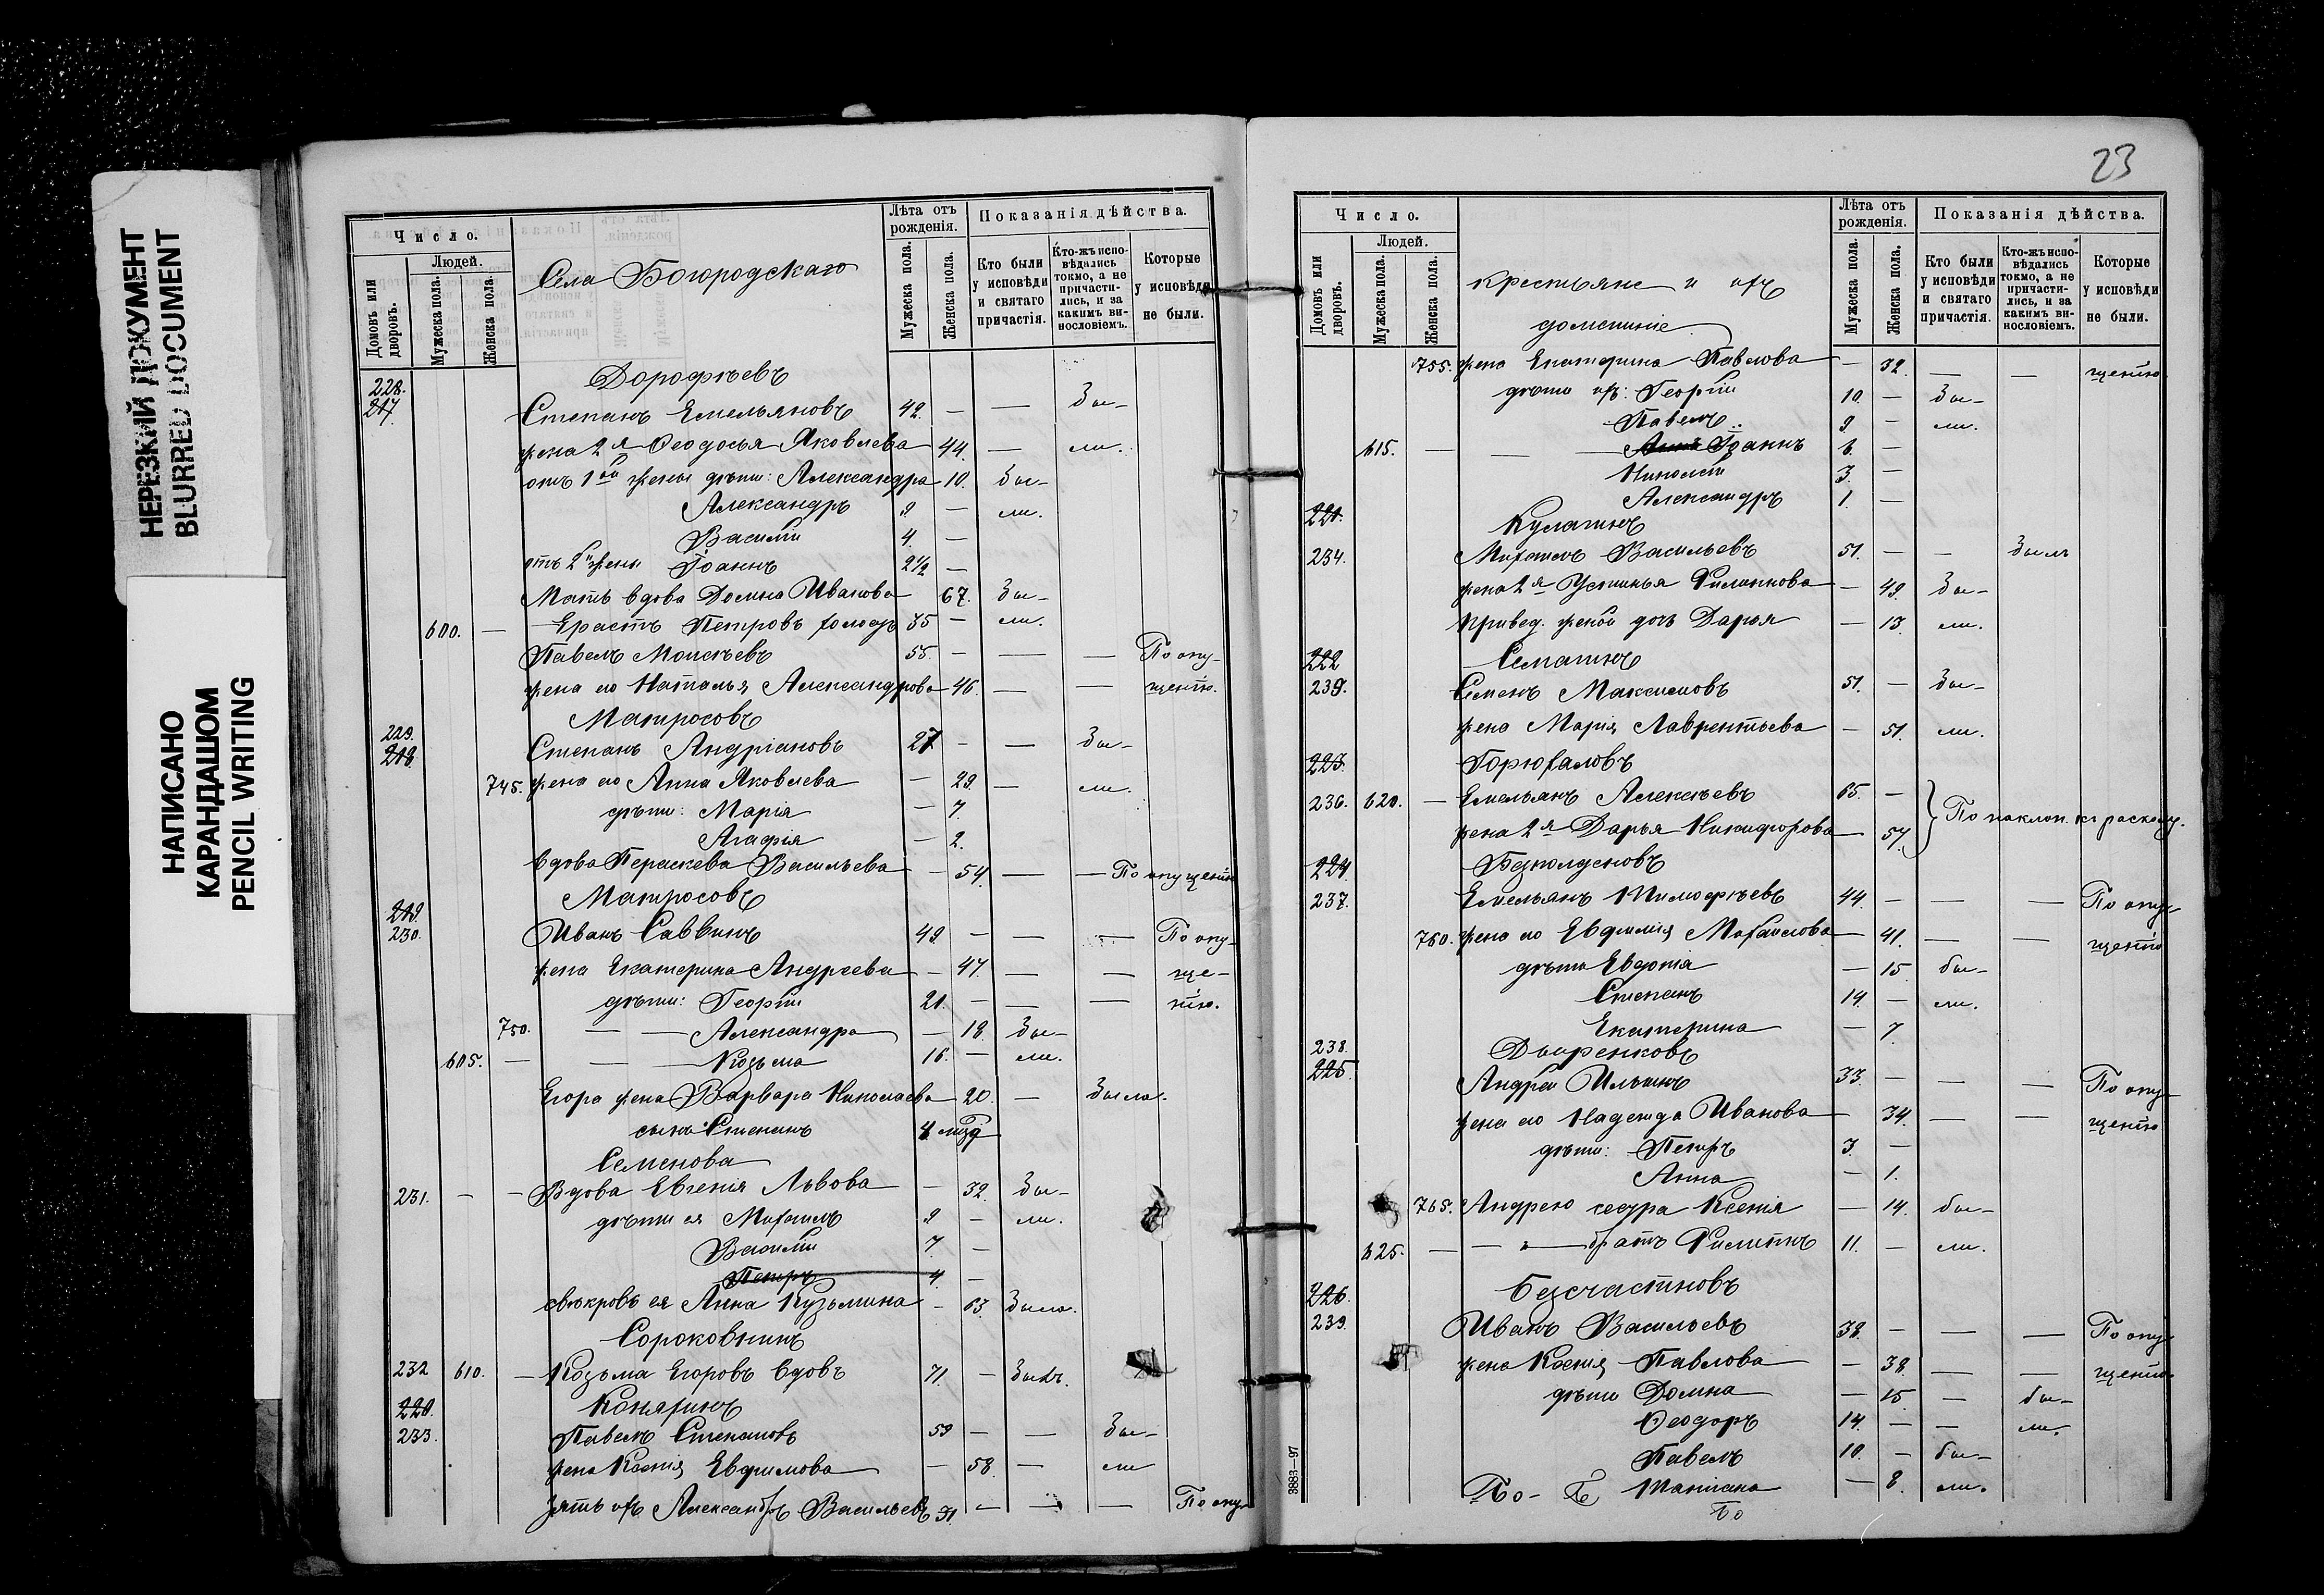 НЕРЕЗКИЙ ДОКУМЕНТ
BLURRED DOCUMENT
НАПИСАНО
КАРАНДАШОМ
PENCIL WRITING
Число.
Людей.
Домовъ или дворовъ.
Мужеска пола.
Женска пола.
Села Богородскаго
Лѣта отъ рожденія.
Мужеска пола.
Женска пола.
Показанія дѣйства.
Кто были у исповѣди и святаго причастія.
Кто-жъ исповѣдались токмо, а не причастились, и за какимъ винословіемъ.
Которые у исповѣди не были.
228. Дорофѣевъ
217. Степанъ Емельяновъ 42. — — Бы-
жена 2я Ѳеодосья Яковлева 44. — ли.
отъ 1ой жены дѣти: Александра 10. Бы-
Александръ 9 — ли.
Василій 4. —
отъ 2й жены Іоаннъ 2½ —
Мать вдова Домна Иванова 67. Бы-
600. — Ерастъ Петровъ холостъ 35 — ли.
Павелъ Моисѣевъ 55. — — — По опу-
жена его Наталья Александрова 46. — — щенію.
Матросовъ
229.
218. Степанъ Андріановъ 27 — — Бы-
745. жена его Анна Яковлева — 29. — ли.
дѣти: Марія — 7.
Агафія — 2.
вдова Параскева Васильева — 54. — — По опущенію
Матросовъ
219.
230. Иванъ Саввинъ 49. — — — По опу-
жена Екатерина Андреева — 47. — — ще-
дѣти: Георгій 21. — — — нію.
750. — — Александра — 18. Бы-
605. — — Козьма 16. — ли.
Егора жена Варвара Николаева 20. — Была.
сынъ Степанъ
Семенова
231. — — Вдова Евгенія Львова — 32. Бы-
дѣти ея Михаилъ 9 — ли.
Василій 7. —
Петръ 4. —
свекровь ея Анна Кузьмина — 63. Была.
Сороковнинъ
232 610. — Козьма Егоровъ вдовъ 71. — Былъ.
220. Коняхинъ
233. Павелъ Степановъ 59 — — Бы-
жена Ксенія Евфимова — 58. — ли
зять ихъ Александръ Васильевъ 31. — — — По опу-
23
Число.
Людей.
Домовъ или дворовъ.
Мужеска пола.
Женска пола.
крестьяне и ихъ
домашніе.
Лѣта отъ рожденія.
Мужеска пола.
Женска пола.
Показанія дѣйства.
Кто были у исповѣди и святаго причастія.
Кто-жъ исповѣдались токмо, а не причастились, и за какимъ винословіемъ.
Которые у исповѣди не были.
755. жена Екатерина Павлова — 32. — — щенію.
дѣти ихъ: Георгій 10. — Бы-
Павелъ 9 — ли.
615. — — Іоаннъ 6. —
Николай 3. —
Александръ 1. —
221. Кулагинъ
234. Михаилъ Васильевъ 51. — — Былъ
жена 2я Устинья Филиппова — 49. Бы-
привед. женой дочь Дарья — 13. ли.
222 Семагинъ
239. Семенъ Максимовъ 51. — Бы-
жена Марія Лаврентьева — 51. ли.
223. Горюхаловъ
236. 620. — Емельянъ Алексѣевъ 65. —
жена 2я Дарья Никифорова — 57. По наклон. къ расколу.
224.
237. Емельянъ Тимофѣевъ 44. — — — По опу-
760. жена его Евфимія Михаилова — 41. — — щенію
дѣти Евдокія — 15 бы-
Степанъ 14. — ли.
Екатерина — 7
238. Дыренковъ
225. Андрей Ильинъ 33. — — — По опу-
жена его Надежда Иванова — 34. — — щенію
дѣти: Петръ 3. —
Анна — 1.
765. Андрею сестра Ксенія — 14. бы-
625. — — братъ Филиппъ 11. — ли.
226. Безсчастновъ
239. Иванъ Васильевъ 38. — — — По опу-
жена Ксенія Павлова — 38. — — щенію.
дѣти Домна — 15 — бы-
Ѳеодоръ 14. — — ли.
Павелъ 10. — бы-
Татіана — 8. ли.
3883—97